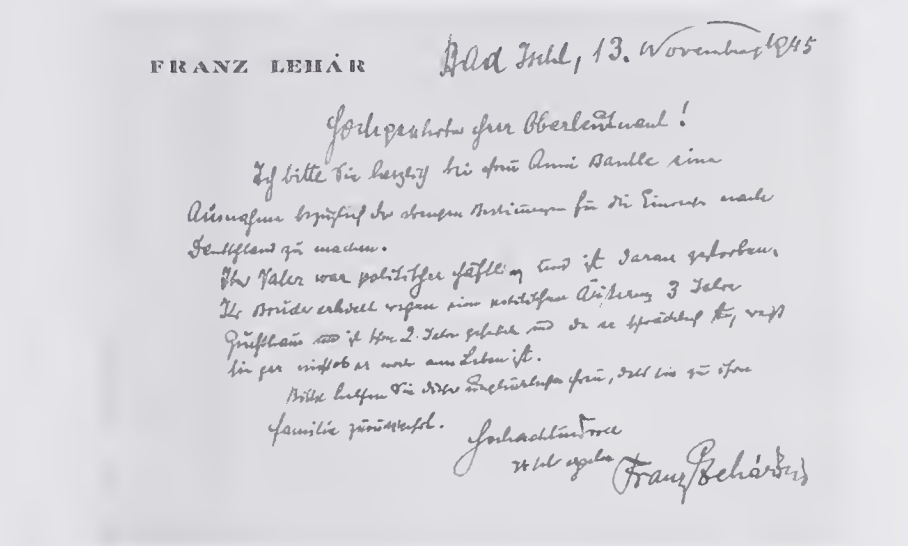 FRANZ LEHÁR
Bad Ischl, 13. November 1945
Hochgeehrter Herr Oberleutnant!
Ich bitte Sie herzlich bei Frau Anni eine
Ausnahme bezüglich der strengen Bestimmungen für die Einreise nach
Deutschland zu machen.
Ihr Vater war politischer Häftling und ist daran gestorben.
Ihr Bruder erhielt wegen einer politischen Äußerung 3 Jahre
Zuchthaus und ist 2 Jahre und da er, weiß
sie gar nicht ob er noch am Leben ist.
Bitte helfen Sie dieser unglücklichen Frau, daß sie zu ihrer
Familie zurückkehrt.
Hochachtungsvoll
Ihr ergebener
Franz Lehár